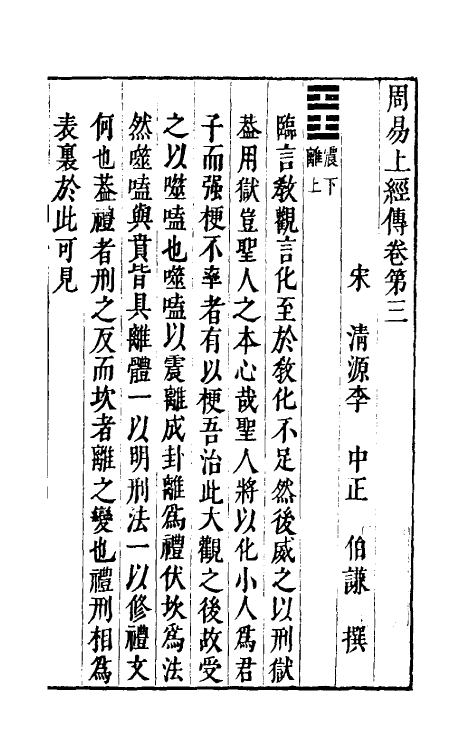 周易上經傳卷第三
宋 清源李 中正 伯謙 撰
震下
離上
臨言敎觀言化至於敎化不足然後威之以刑獄
葢用獄豈聖人之本心哉聖人將以化小人爲君
子而强梗不率者有以梗吾治此大觀之後故受
之以噬嗑也噬嗑以震離成卦離爲禮伏坎爲法
然噬嗑與賁皆具離體一以明刑法一以修禮文
何也葢禮者刑之反而坎者離之變也禮刑相爲
表裏於此可見